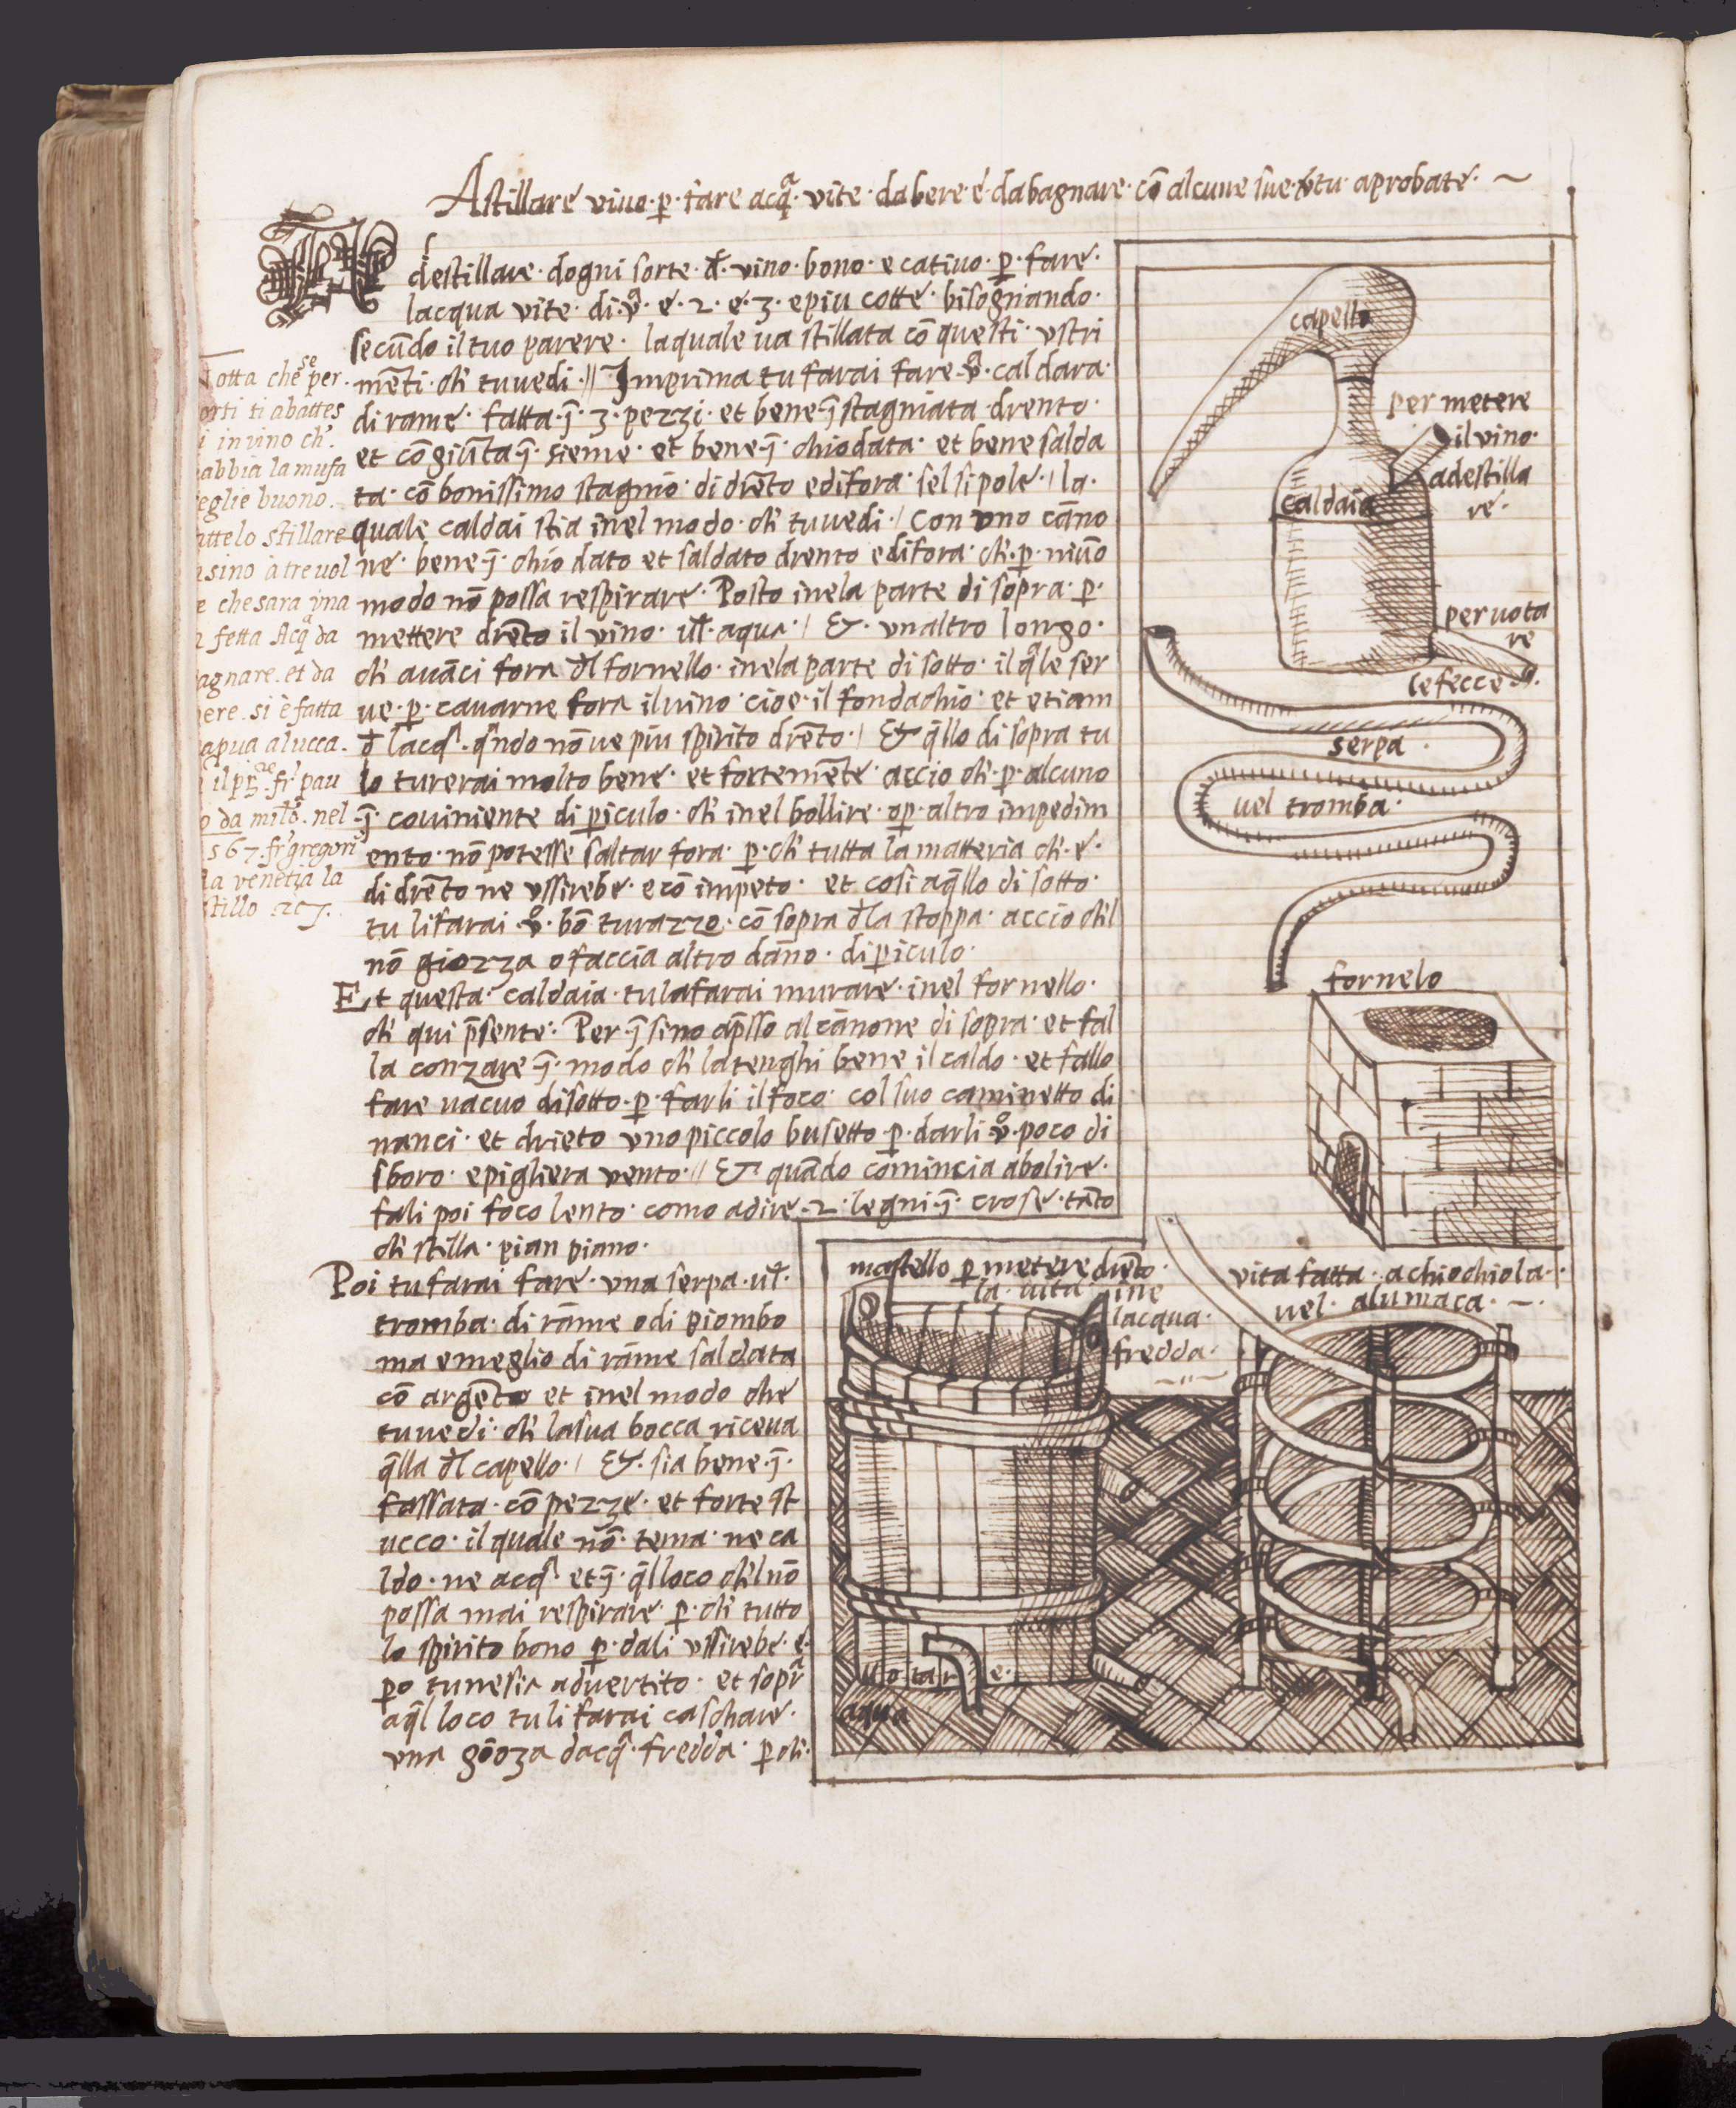 Astillare vino · p̱ · fare acq̃ᵃ · vite · dabere · e · dabagnare · cõ alcune sue · v̓tu · aprobate · ~
A destillare · dogni sorte · đ · vino · bono · e cativo · p̱ · fare ·
lacqua vite · di · v̊ · e · 2 · e · 3 · epiu cotte · bisognando ·
secũdo il tuo parere · laquale va stillata cõ questi · ustri
mẽti · ch̓ tuvedi · // Imprima tu farai fare · v̊ · caldara ·
di rame · fatta · j̃ · 3 · pezzi · et bene · j̃ stagniata · drento ·
et cõgiũta j̃ · sieme · et bene · j̃ · chiodata · et bene salda
ta · cõ bonissimo stagnio · di drẽto edifora · sel si pole · / la ·
quale caldai stia inel modo · ch̓ tuvedi · / Con uno cãno
ne · bene · j̃ · chiodato et saldato drento edifora · ch̓ · p̱ · niũo
modo nõ possa respirare · Posto inela parte di sopra · p̱ ·
mettere drẽto il vino · ul̃ · aqua · / & · unaltro longo ·
ch̓ avãci fora đl fornello · inela parte di sotto · il q̃le ser
ve · p̱ · cavarne fora il vino · cioe · il fondachio · et etiam
đ lacqᵃ · qᵃndo nõ ve piu spirito drẽto · / & q̃llo di sopra tu
lo turerai molto bene · et fortemẽte · accio ch̓ · p̱ · alcuno
j̃ · coviniente di p̱iculo · ch̓ inel bollire · op̱ · altro impedim
ento · nõ potesse saltar fora · p̱ · ch̓ tutta la matteria ch̓ · e ·
di drẽto ne ussirebe · e cõ impeto · et cosi aq̃llo di sotto ·
tu li farai · v̊ · bõ turazzo · cõ sopra đla stoppa · accio ch̓l
nõ giozza o faccia altro dãno · di p̱iculo ·
Et questa · caldaia · tu la farai murare · inel fornello ·
ch̓ qui p̃sente · Per j̃ sino ap̃sso al cãnone di sopra · et fal
la conzare j̃ · modo ch̓ la tenghi bene il caldo · et fallo
fare vacuo disotto · p̱ · farli il foco · col suo caminetto di
nanci · et drieto uno piccolo busetto · p̱ · darli · v̊ · poco di
sboro · epigliera vento · // & quãdo comincia abolire ·
fali poi foco lento · como adire · 2 · legni · j̃ · crose · tãto
ch̓ stilla · pian piano ·
Poi tu farai fare · una serpa · ul̃ ·
tromba · di rãme o di piombo
ma emeglio di rãme saldata
cõ argẽto et inel modo che
tuvedi · ch̓ la sua bocca riceva
q̃lla đl capello · / & · sia bene · j̃ ·
fassata · cõ pezze · et forte st
ucco · il quale nõ · tema · ne ca
ldo · ne acqᵃ · et j̃ · q̃l loco ch̓l nõ
possa mai respirare · p̱ · ch̓ tutto
lo spirito bono p̱ · dali ussirebe · e ·
p̱o tu ne sia advertito · et soprᵃ
aq̃l loco tu li farai caschare ·
una gõoza dacq̃ᵃ · fredda · p̱ch̓ ·
otta che se per ·
orti ti abattes
i in vino ch̓ ·
abbia la mufa
eglie buono ·
attelo stillare
sino à tre vol
e che sara una
fetta Acq̃ᵃ da
agnare · et da
ere · si è fatta
apua a lucca ·
fr̓ pau
o da · nel
567 fr̓ gregori
la venetia la
stillo
capello
per metere
il vino ·
adestilla
re ·
caldaia
per vota
re
le fecce
serpa ·
vel tromba ·
fornelo
mastello p̱ metere drẽto ·
la vita · ine
lacqua ·
fredda ·
vita fatta · a chiochiola ·
vel · alumaca · ~ ·
votare ·
aqua